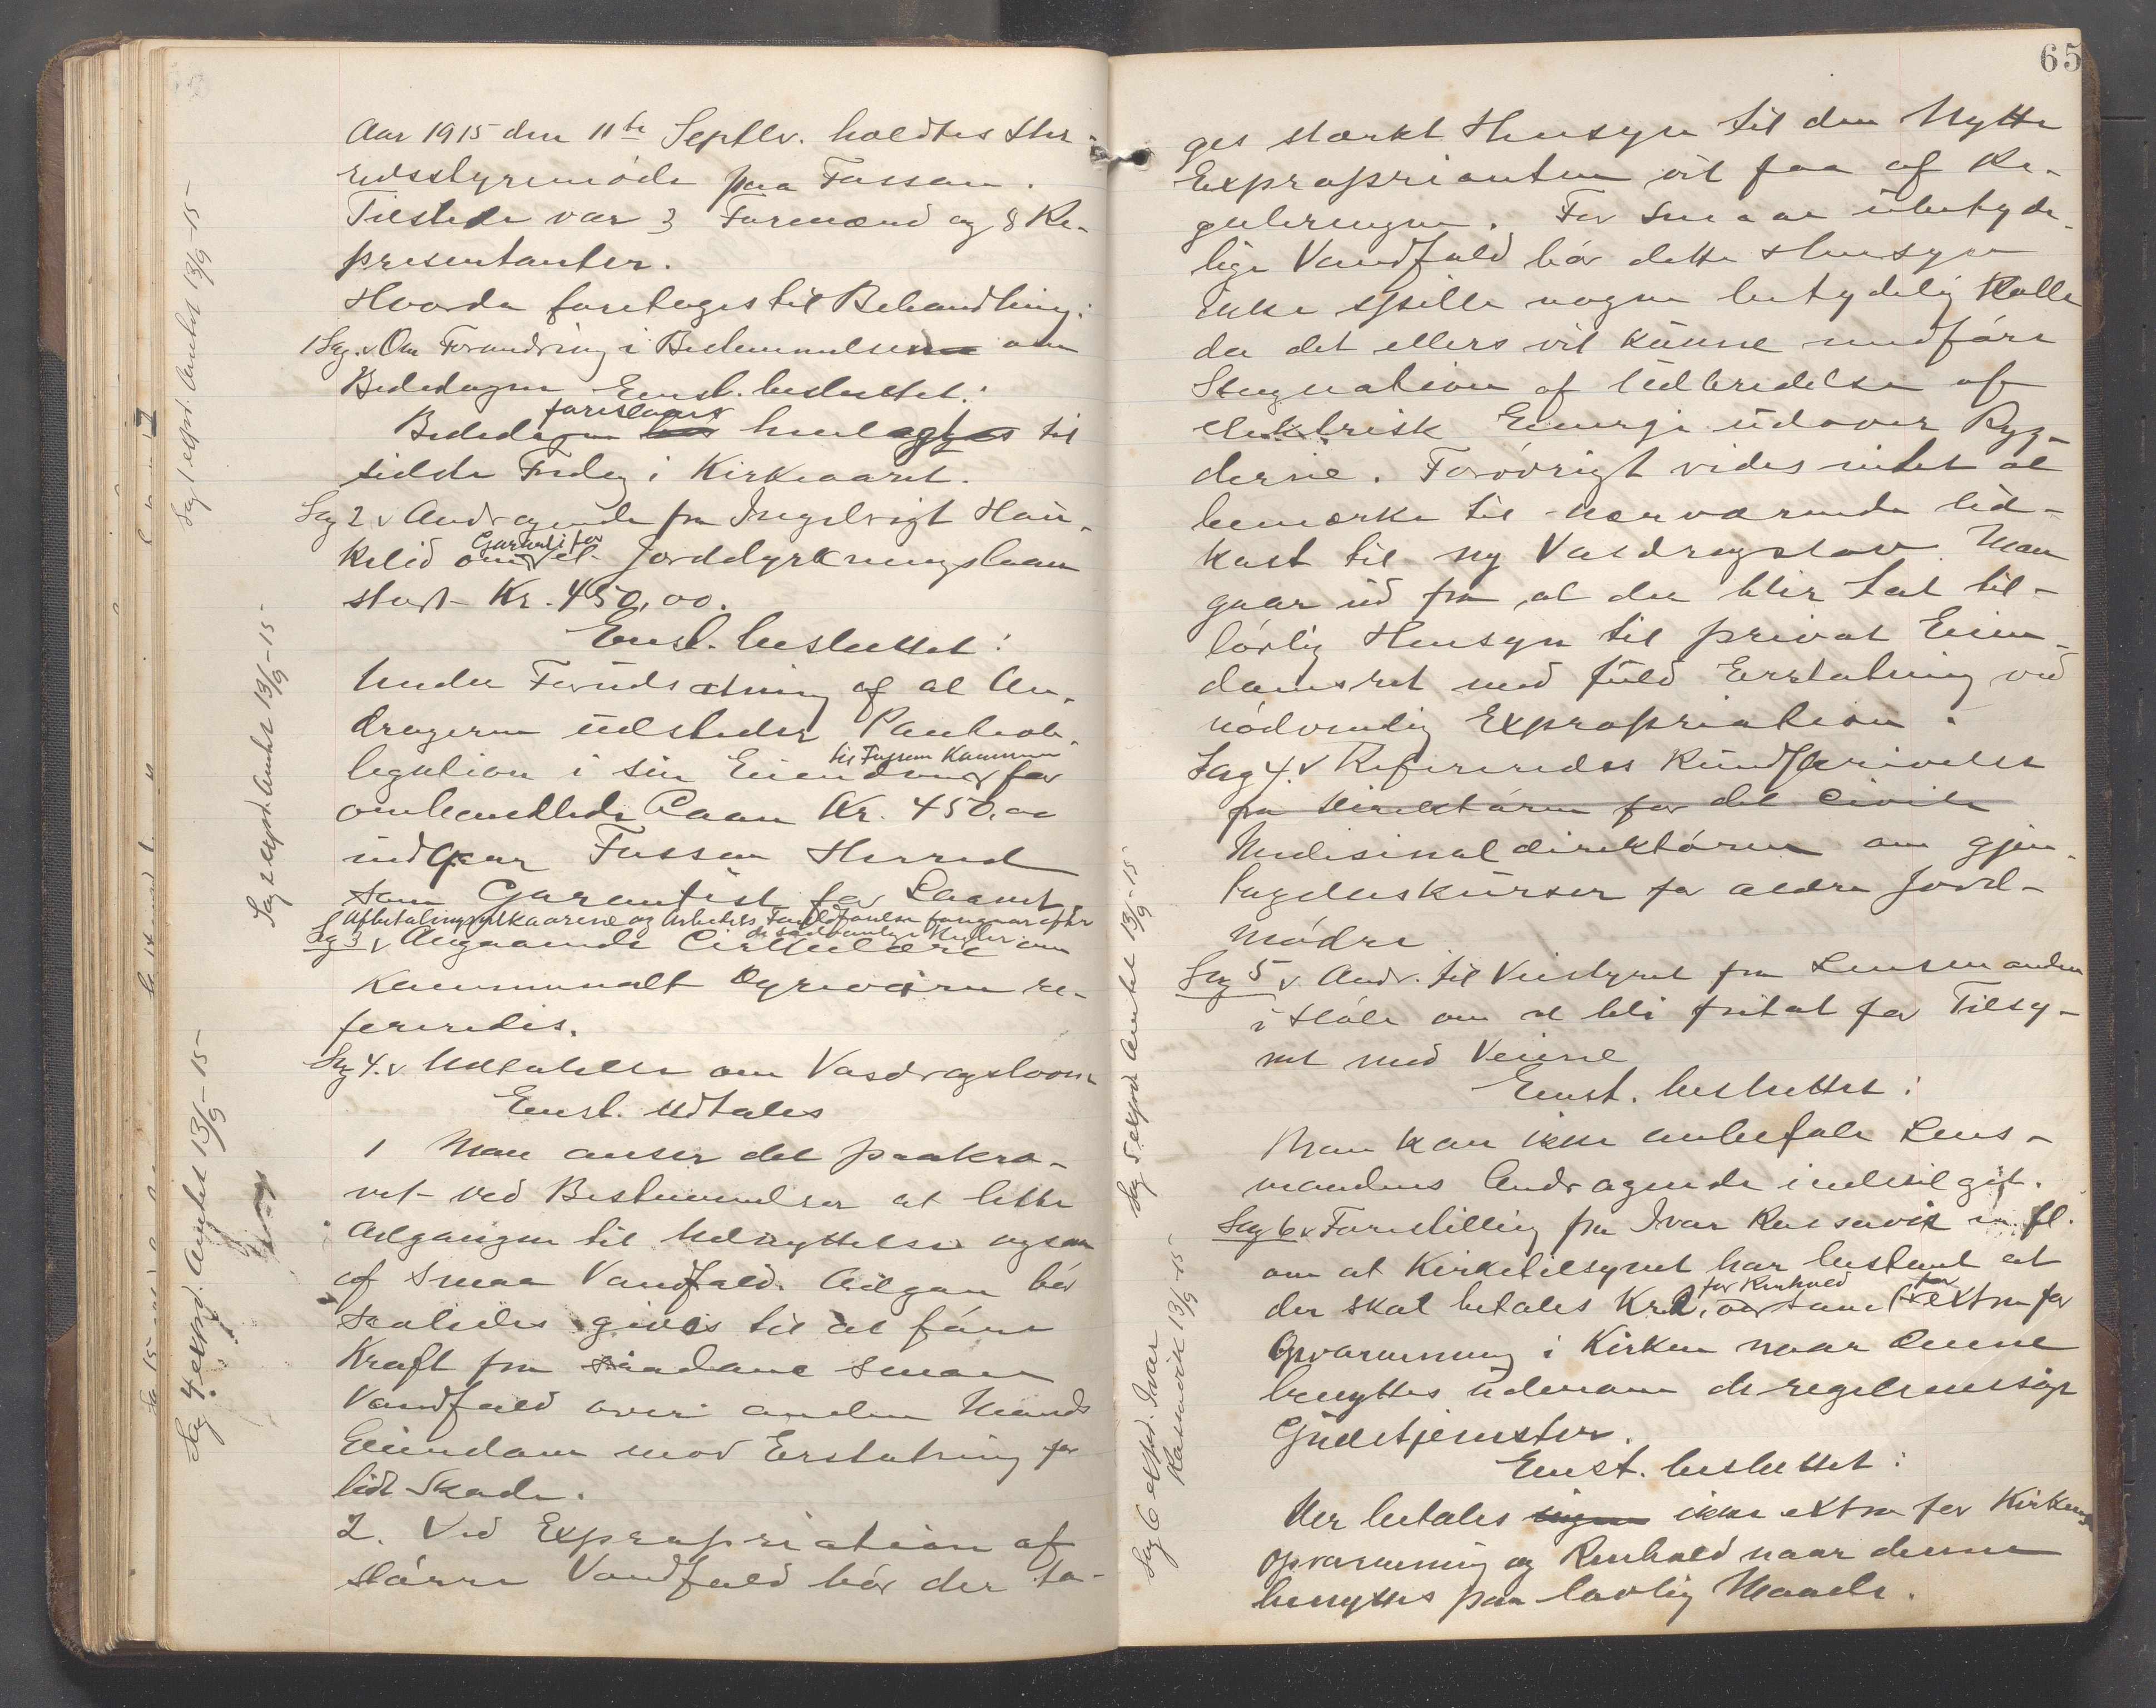 Aar 1915 den 11te Septbr. holdtes Her-
redsstyremöde paa Fossan.
Tilstede var 3 Formænd og 8 Re-
presentanter.
Hvorda foretoges til Behandling:
1 Sag. v Om Forandring i Bestemmelserne om
Bededagen Enst. besluttet:
foreslaaes
Bededagen bør henlægges til
sidste Fredag i Kirkeaaret.
Sag 2 v Andragende fra Ingebrigt Hau-
Garanti for
kelid om et Jorddyrkningslaan
stort Kr. 450,00.
Enst. besluttet:
Under Forudsætning af at An-
drageren udsteder Panteob-
til Fossan Kommune
legation i sin Eiendom for
omhandlede Laan Kr. 450,00
indgaar Fossan Herred
som Garantist for Laanet.
Afbetalingsvilkaarene og Arbeidets Fuldførelse foregaar efter
de sædvanlige Regler.
Sag 3 v Angaaende Cirkulære om
Kommunalt Dyreværn re-
fereredes.
Sag 4. v Uttalelse om Vasdragsloven
Enst. udtales
1 Man anser det paakræ-
vet ved Bestemmelser at lette
Adgangen til Udnyttelse ogsaa
af smaa Vandfald. Adgang bör
saaledes gives til at före
Kraft fra saadane smaa
Vandfald over anden Mands
Eiendom mod Erstatning for
lidt Skade.
2. Ved Expropriation af
större Vandfald bör der ta-
Sag 1 expd. Amtet 13/9-15-
Sag 2 expd. Amtet 13/9-15-
Sag 4 expd. Amtet 13/9-15-
65
ges stærkt Hensyn til den Nytte
Exproprianten vil faa af Re-
guleringen. For smaa ubetyde-
lige Vandfald bör dette Hensyn
ikke spille nogen betydelig Rolle
da det ellers vil kunne medføre
Stagnation af Udbredelse af
elektrisk Energi udover Byg-
derne. Forövrigt vides intet at
bemærke til nærværende Ud-
kast til ny Vasdragslov. Man
gaar ud fra at der blir tat til-
börlig Hensyn til privat Eien-
domsret med fuld Erstatning ved
nödvendig Expropriation.
Sag 4. v Refereredes Rundskrivelse
fra Direktören for det Civile
Medisinaldirektören om gjen-
tagelseskurser for ældre Jord-
mödre
Sag 5 v. Andr. til Veistyret fra Lensmanden
i Höle om at bli fritat for Tilsy-
net med Veiene
Enst. besluttet:
Man kan ikke anbefale Lens-
mandens Andragende indvilget.
Sag 6 v Forestilling fra Ivar Rossavik m. fl.
om at Kirketilsynet har bestemt at
for Renhold
der skal betales Kr. 2,00 samt extra for
Opvarmning i Kirken naar denne
benyttes udenom de regelmessige
Gudstjenester.
Enst. besluttet:
Der betales ingen ikke extra for Kirkens
Opvarmning og Renhold naar denne
benyttes paa lovlig Maade.
Sag 5 expd. Amtet 13/9-15-
Sag 6 expd. Ivar
Rossavik 13/9-15-